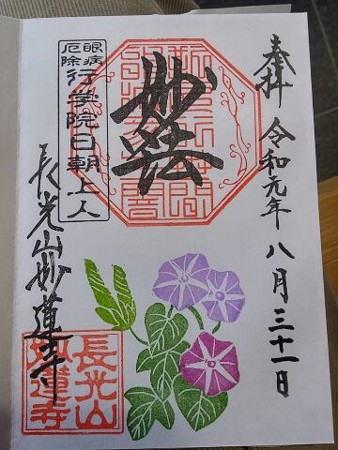 奉拝 令和元年 八月三十一日
妙法
眼病
厄除
行学院日朝上人
長光山妙蓮寺
長光山
妙蓮寺